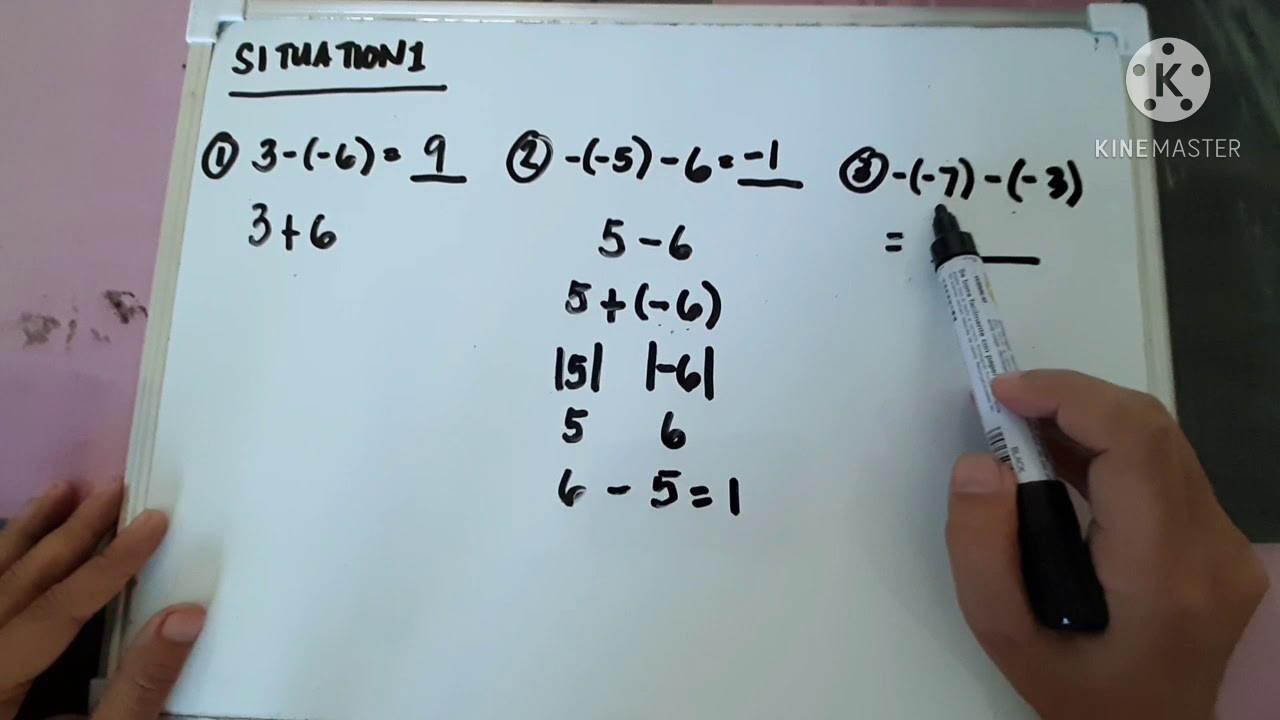 SITUATION 1
① 3-(-6) = 9
3+6
② -(-5)-6 = -1
5-6
5+(-6)
|5| |-6|
5 6
6 - 5 = 1
③ -(-7)-(-3)
=
K
KINEMASTER
BLACK